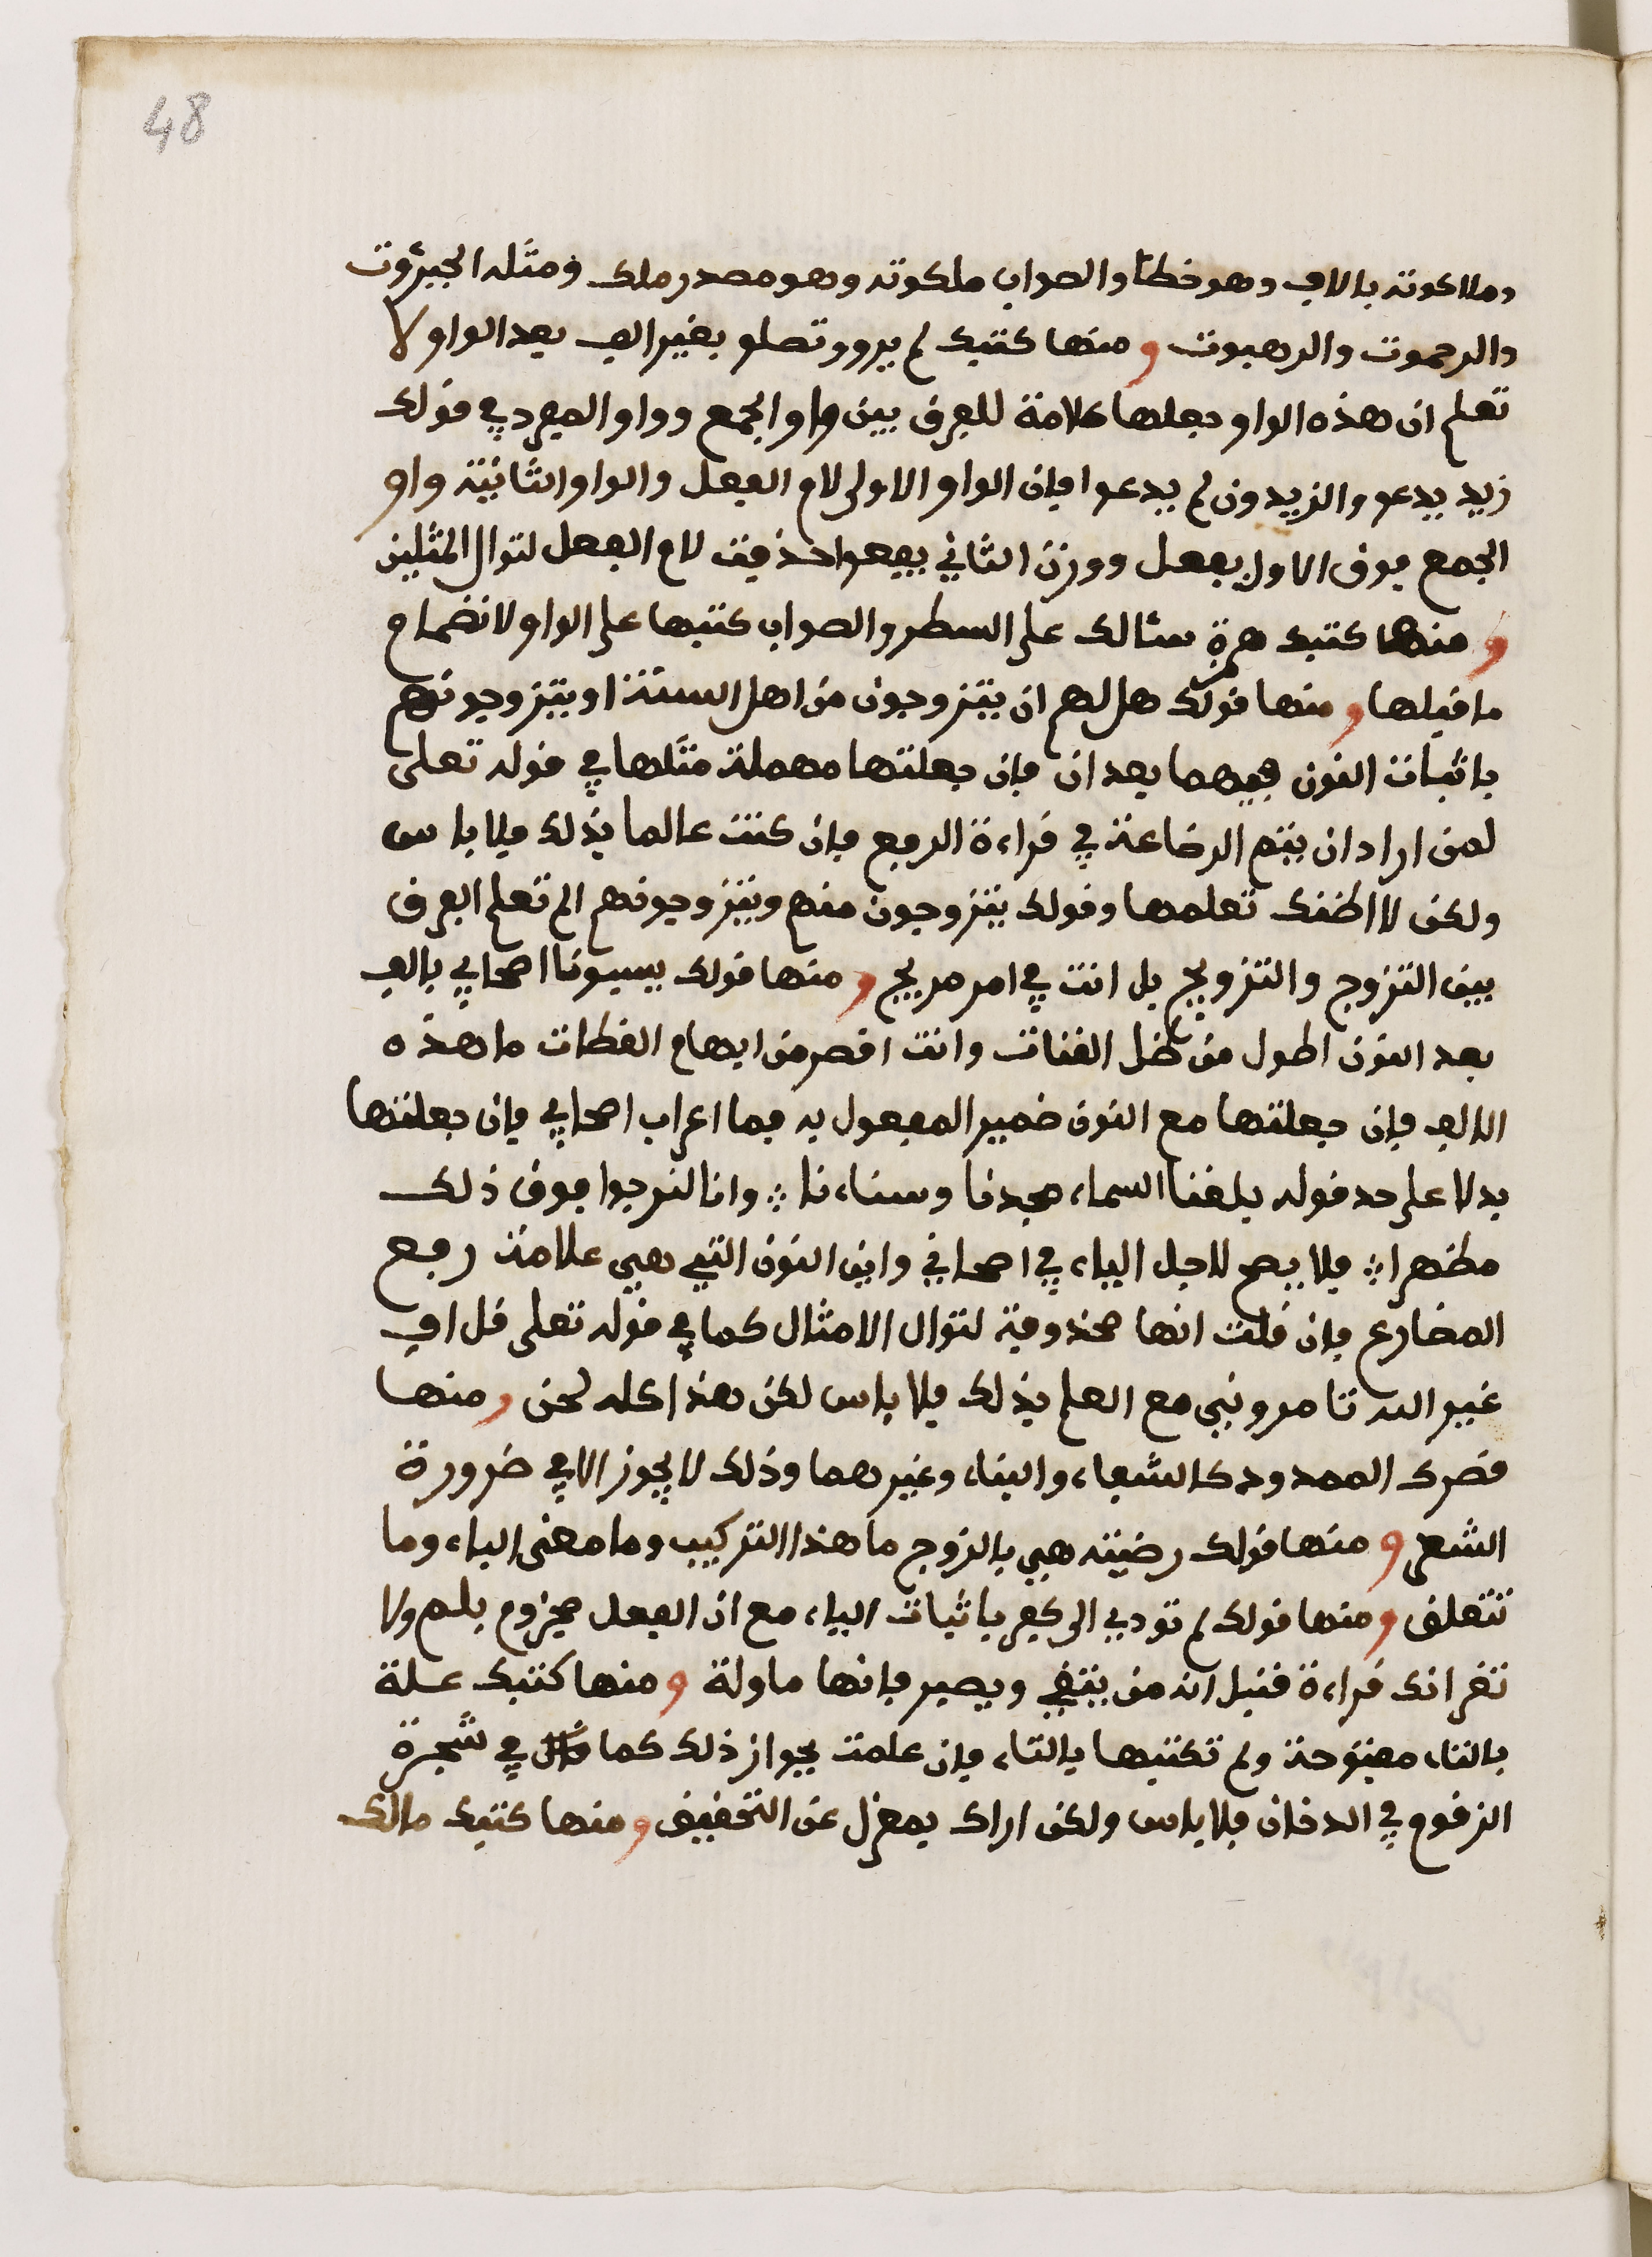 48
وملاكوته بالالف وهو خطأ والصواب ملكوته وهو مصدر ملك ومثله الجبروت
والرحموت والرهبوت ومنها كتبك لم يرو وتصلو بغير الف بعد الواو لا
تعلم ان هذه الواو جعلها علامة للفرق بين واو الجمع وواو المفرد في قولك
زيد يدعو والزيدون لم يدعوا فان الواو الاولى لام الفعل والواو الثانية واو
الجمع فوزن الاول يفعل ووزن الثاني يفعوا حذفت لام الفعل لتوال المثلين
ومنها كتبك همزة سئالك على السطر والصواب كتبها على الواو لانضمام
ما قبلها ومنها قولك هل لهم ان يتزوجون من اهل السنة او يتزوجونهم
باثبات النون فيهما بعد ان فان جعلتها مهملة مثلها في قوله تعلى
لمن اراد ان يتم الرضاعة في قراءة الرفع فان كنت عالما بذلك فلا باس
ولكن لا اظنك تعلمها وقولك يتزوجون منهم ويتزوجونهم الم تعلم الفرق
بين التزوج والتزويج بل انت في امر مريج ومنها قولك يسبونا اصحابي بالف
بعد النون اطول من ظل القنات وانت اقصر من ابهام القطات ما هذه
الالف فان جعلتها مع النون ضمير المفعول به فما اعراب اصحابي فان جعلتها
بدلا على حد قوله بلغنا السماء مجدنا وسناءنا ؞ وانا لنرجوا فوق ذلك
مظهرا ؞ فلا يصح لاجل الياء في اصحابي واين النون التي هي علامة رفع
المضارع فان قلت انها محذوفة لتوال الامثال كما في قوله تعلى قل اف
غير الله تامروني مع العلم بذلك فلا باس لكن هذا كله لحن ومنها
قصرك الممدود كالشفاء والبناء وغيرهما وذلك لا يجوز الا في ضرورة
الشعر ومنها قولك رضيته هي بالزوج ما هذا التركيب وما معنى الباء وما
تتعلق ومنها قولك لم تودي الى كفر باثبات الياء مع ان الفعل مجزوم بلم ولا
تقر انك قراءة قنبل انه من يتقي ويصير فانها ماولة ومنها كتبك علة
بالتاء مفتوحة ولم تكتبها بالتاء فان علمت بجواز ذلك كما في شجرة
الزقوم في الدخان فلا باس ولكن اراك بمعزل عن التحقيق ومنها كتبك مالك